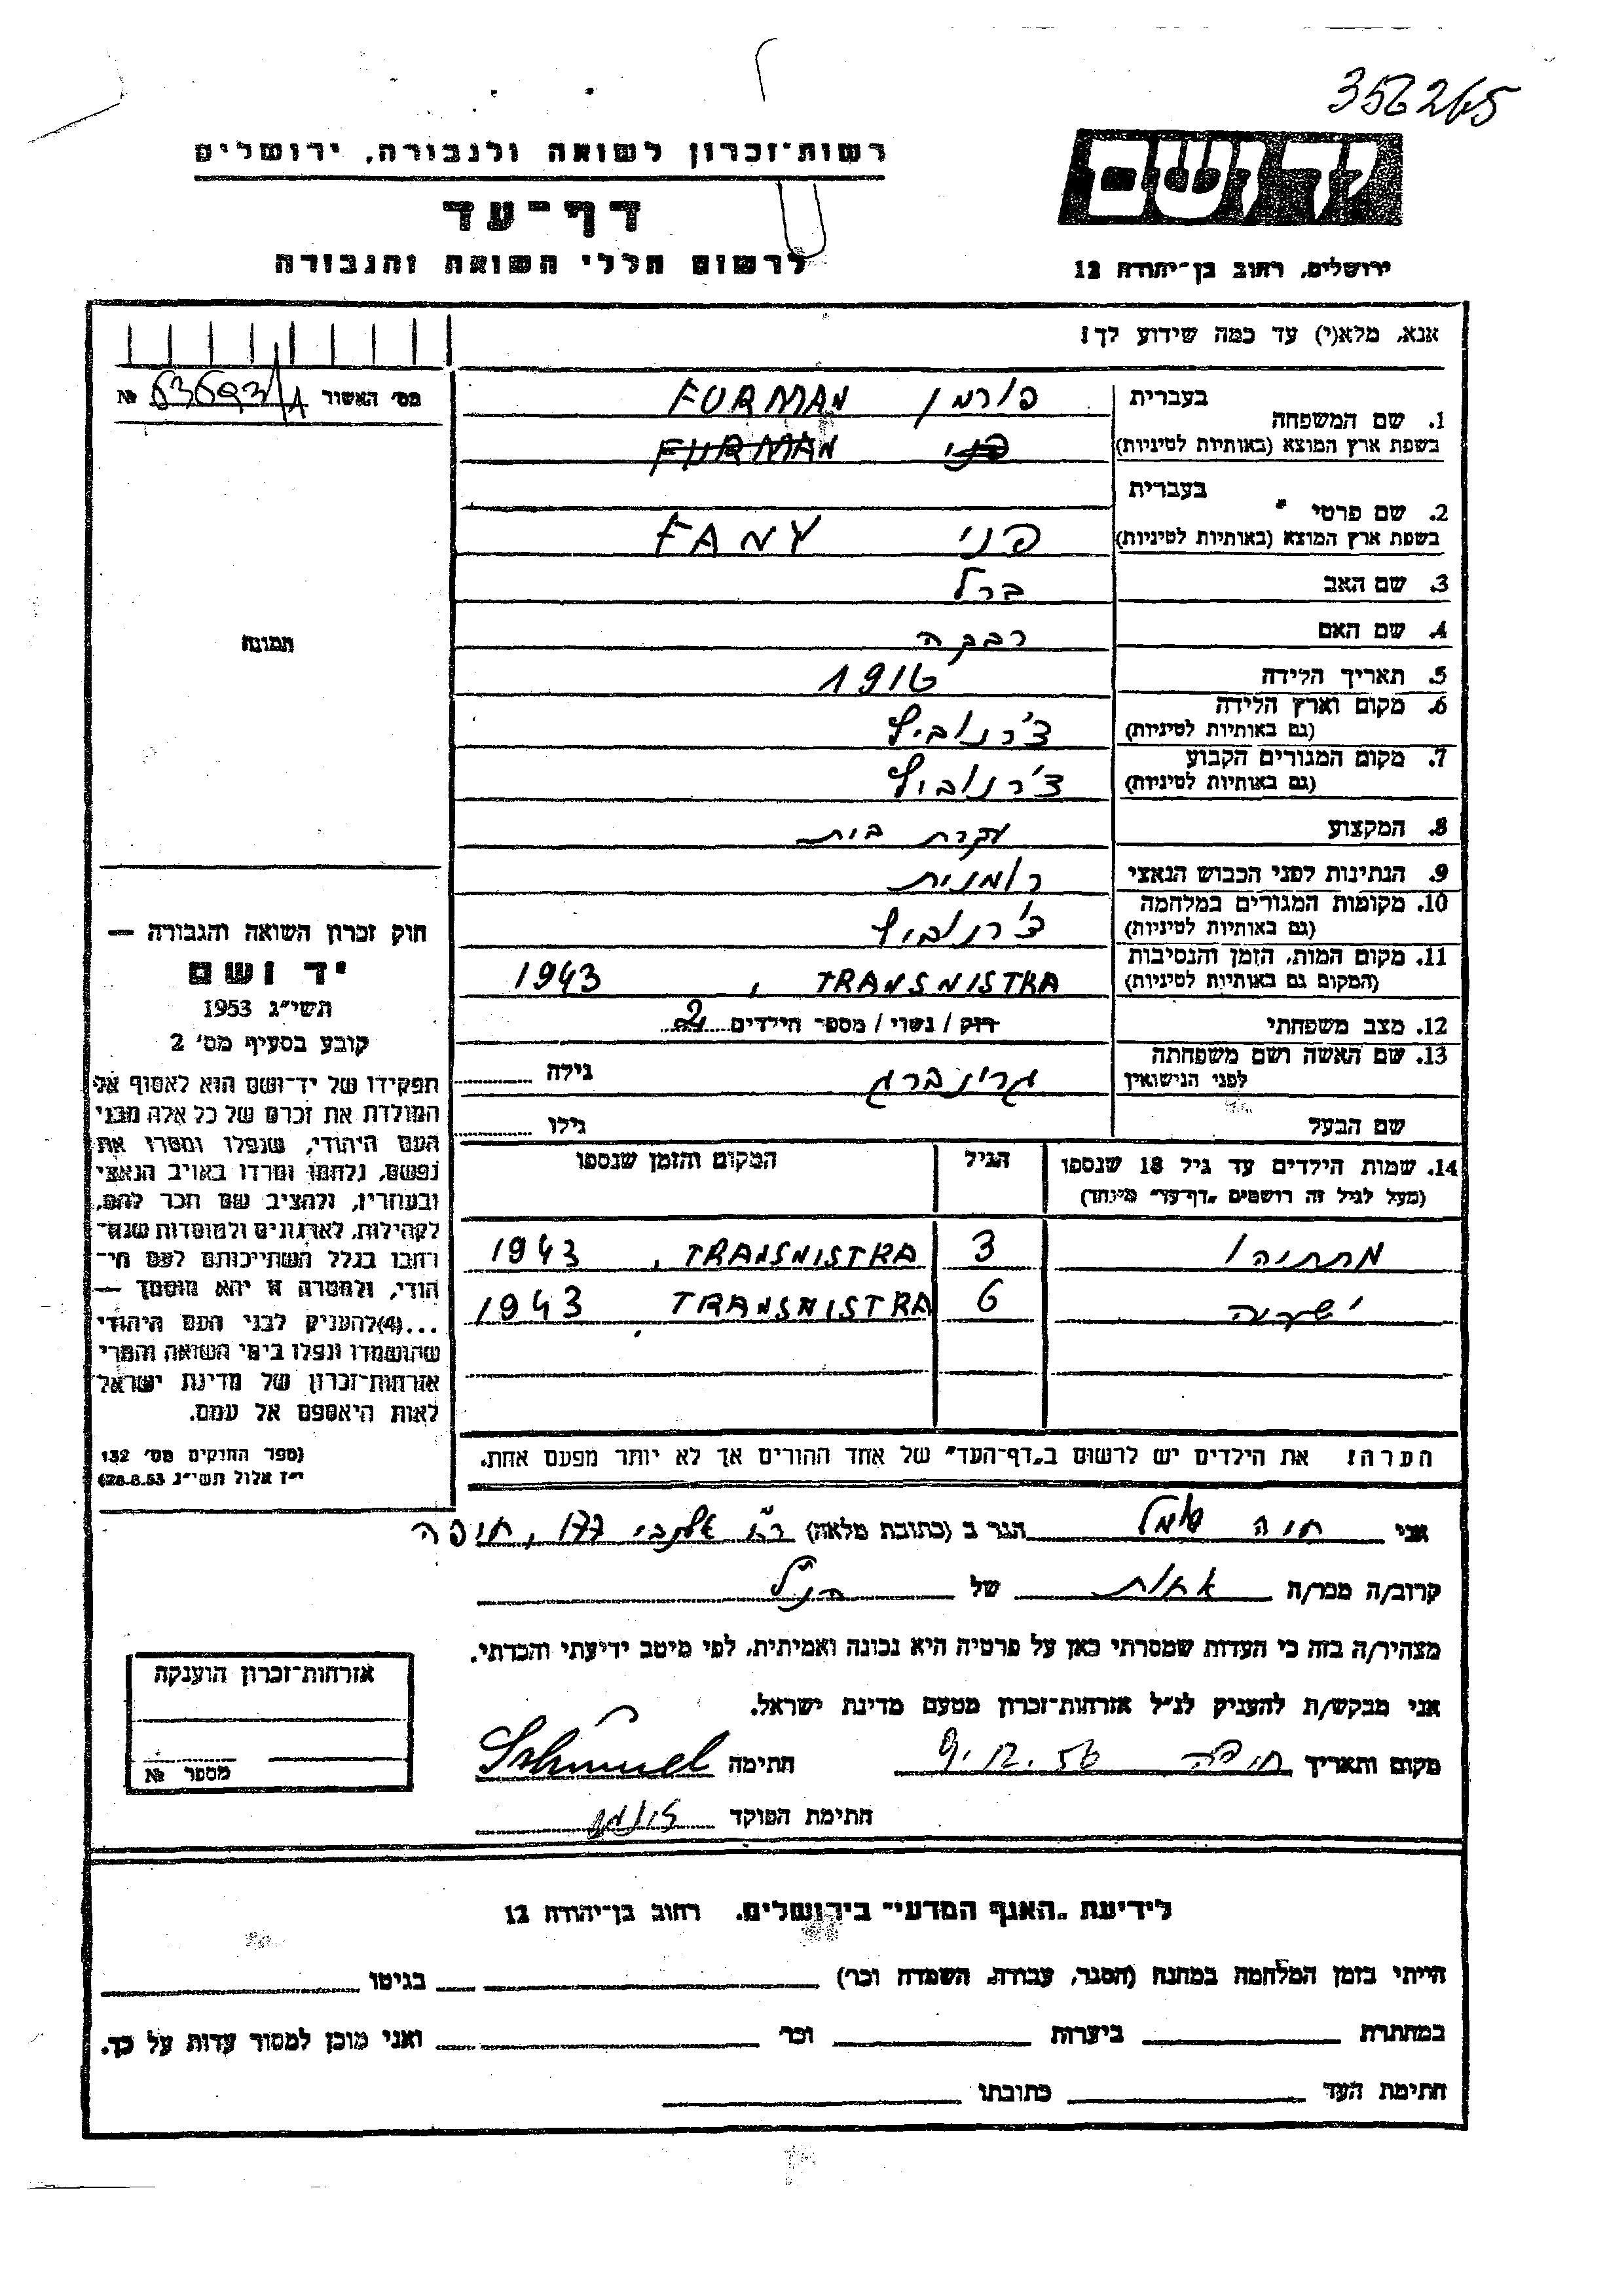 356265
רשות־זכרון לשואה ולגבורה, ירושלים
יד ושם
דף־עד
לרשום חללי השואה והגבורה
ירושלים, רחוב בן־יהודה 12
אנא, מלא(י) עד כמה שידוע לך!
מס׳ האשור №
בעברית
1. שם המשפחה
פורמן FURMAN
בשפת ארץ המוצא (באותיות לטיניות)
פני FURMAN
בעברית
2. שם פרטי
בשפת ארץ המוצא (באותיות לטיניות)
פני FANY
3. שם האב ברל
4. שם האם רבקה
תמונה
5. תאריך הלידה 1916
6. מקום וארץ הלידה
(גם באותיות לטיניות) צ׳רנוביץ
7. מקום המגורים הקבוע
(גם באותיות לטיניות) צ׳רנוביץ
8. המקצוע עקרת בית
9. הנתינות לפני הכבוש הנאצי רומנית
10. מקומות המגורים במלחמה
(גם באותיות לטיניות) צ׳רנוביץ
11. מקום המות, הזמן והנסיבות
(המקום גם באותיות לטיניות) TRANSNISTRA , 1943
12. מצב משפחתי רוק / נשוי / מספר הילדים 2
13. שם האשה ושם משפחתה
לפני הנישואין גרינברג גילה
שם הבעל גילו
14. שמות הילדים עד גיל 18 שנספו הגיל המקום והזמן שנספו
(מעל לגיל זה רושמים „דף־עד״ מיוחד)
מתתיהו 3 TRANSNISTRA , 1943
ישעיה 6 TRANSNISTRA , 1943
הערה: את הילדים יש לרשום ב„דף־העד״ של אחד ההורים אך לא יותר מפעם אחת.
חוק זכרון השואה והגבורה —
יד ושם
תשי״ג 1953
קובע בסעיף מס׳ 2
תפקידו של יד־ושם הוא לאסוף אל
המולדת את זכרם של כל אלה מבני
העם היהודי, שנפלו ומסרו את
נפשם, נלחמו ומרדו באויב הנאצי
ובעוזריו, ולהציב שם וזכר להם,
לקהילות, לארגונים ולמוסדות שנח־
רבו בגלל השתייכותם לעם הי־
הודי, ולמטרה זו יהא מוסמך —
...(4)להעניק לבני העם היהודי
שהושמדו ונפלו בימי השואה והמרי
אזרחות־זכרון של מדינת ישראל
לאות היאספם אל עמם.
(ספר החוקים מס׳ 132
י״ז אלול תשי״ג 28.8.53)
אני חיה שמל הגר ב (כתובת מלאה) רח׳ אלנבי 177, חיפה
קרוב/ה מכר/ה אחות של הנ״ל
מצהיר/ה בזה כי העדות שמסרתי כאן על פרטיה היא נכונה ואמיתית, לפי מיטב ידיעתי והכרתי.
אני מבקש/ת להעניק לנ״ל אזרחות־זכרון מטעם מדינת ישראל.
מקום ותאריך חיפה 9.12.56 חתימה
חתימת הפוקד
אזרחות־זכרון הוענקה
מספר №
לידיעת „האגף המדעי״ בירושלים, רחוב בן־יהודה 12
הייתי בזמן המלחמה במחנה (הסגר, עבודה, השמדה וכו׳) בגיטו
במחתרת ביערות וכו׳ ואני מוכן למסור עדות על כך.
חתימת העד כתובתו